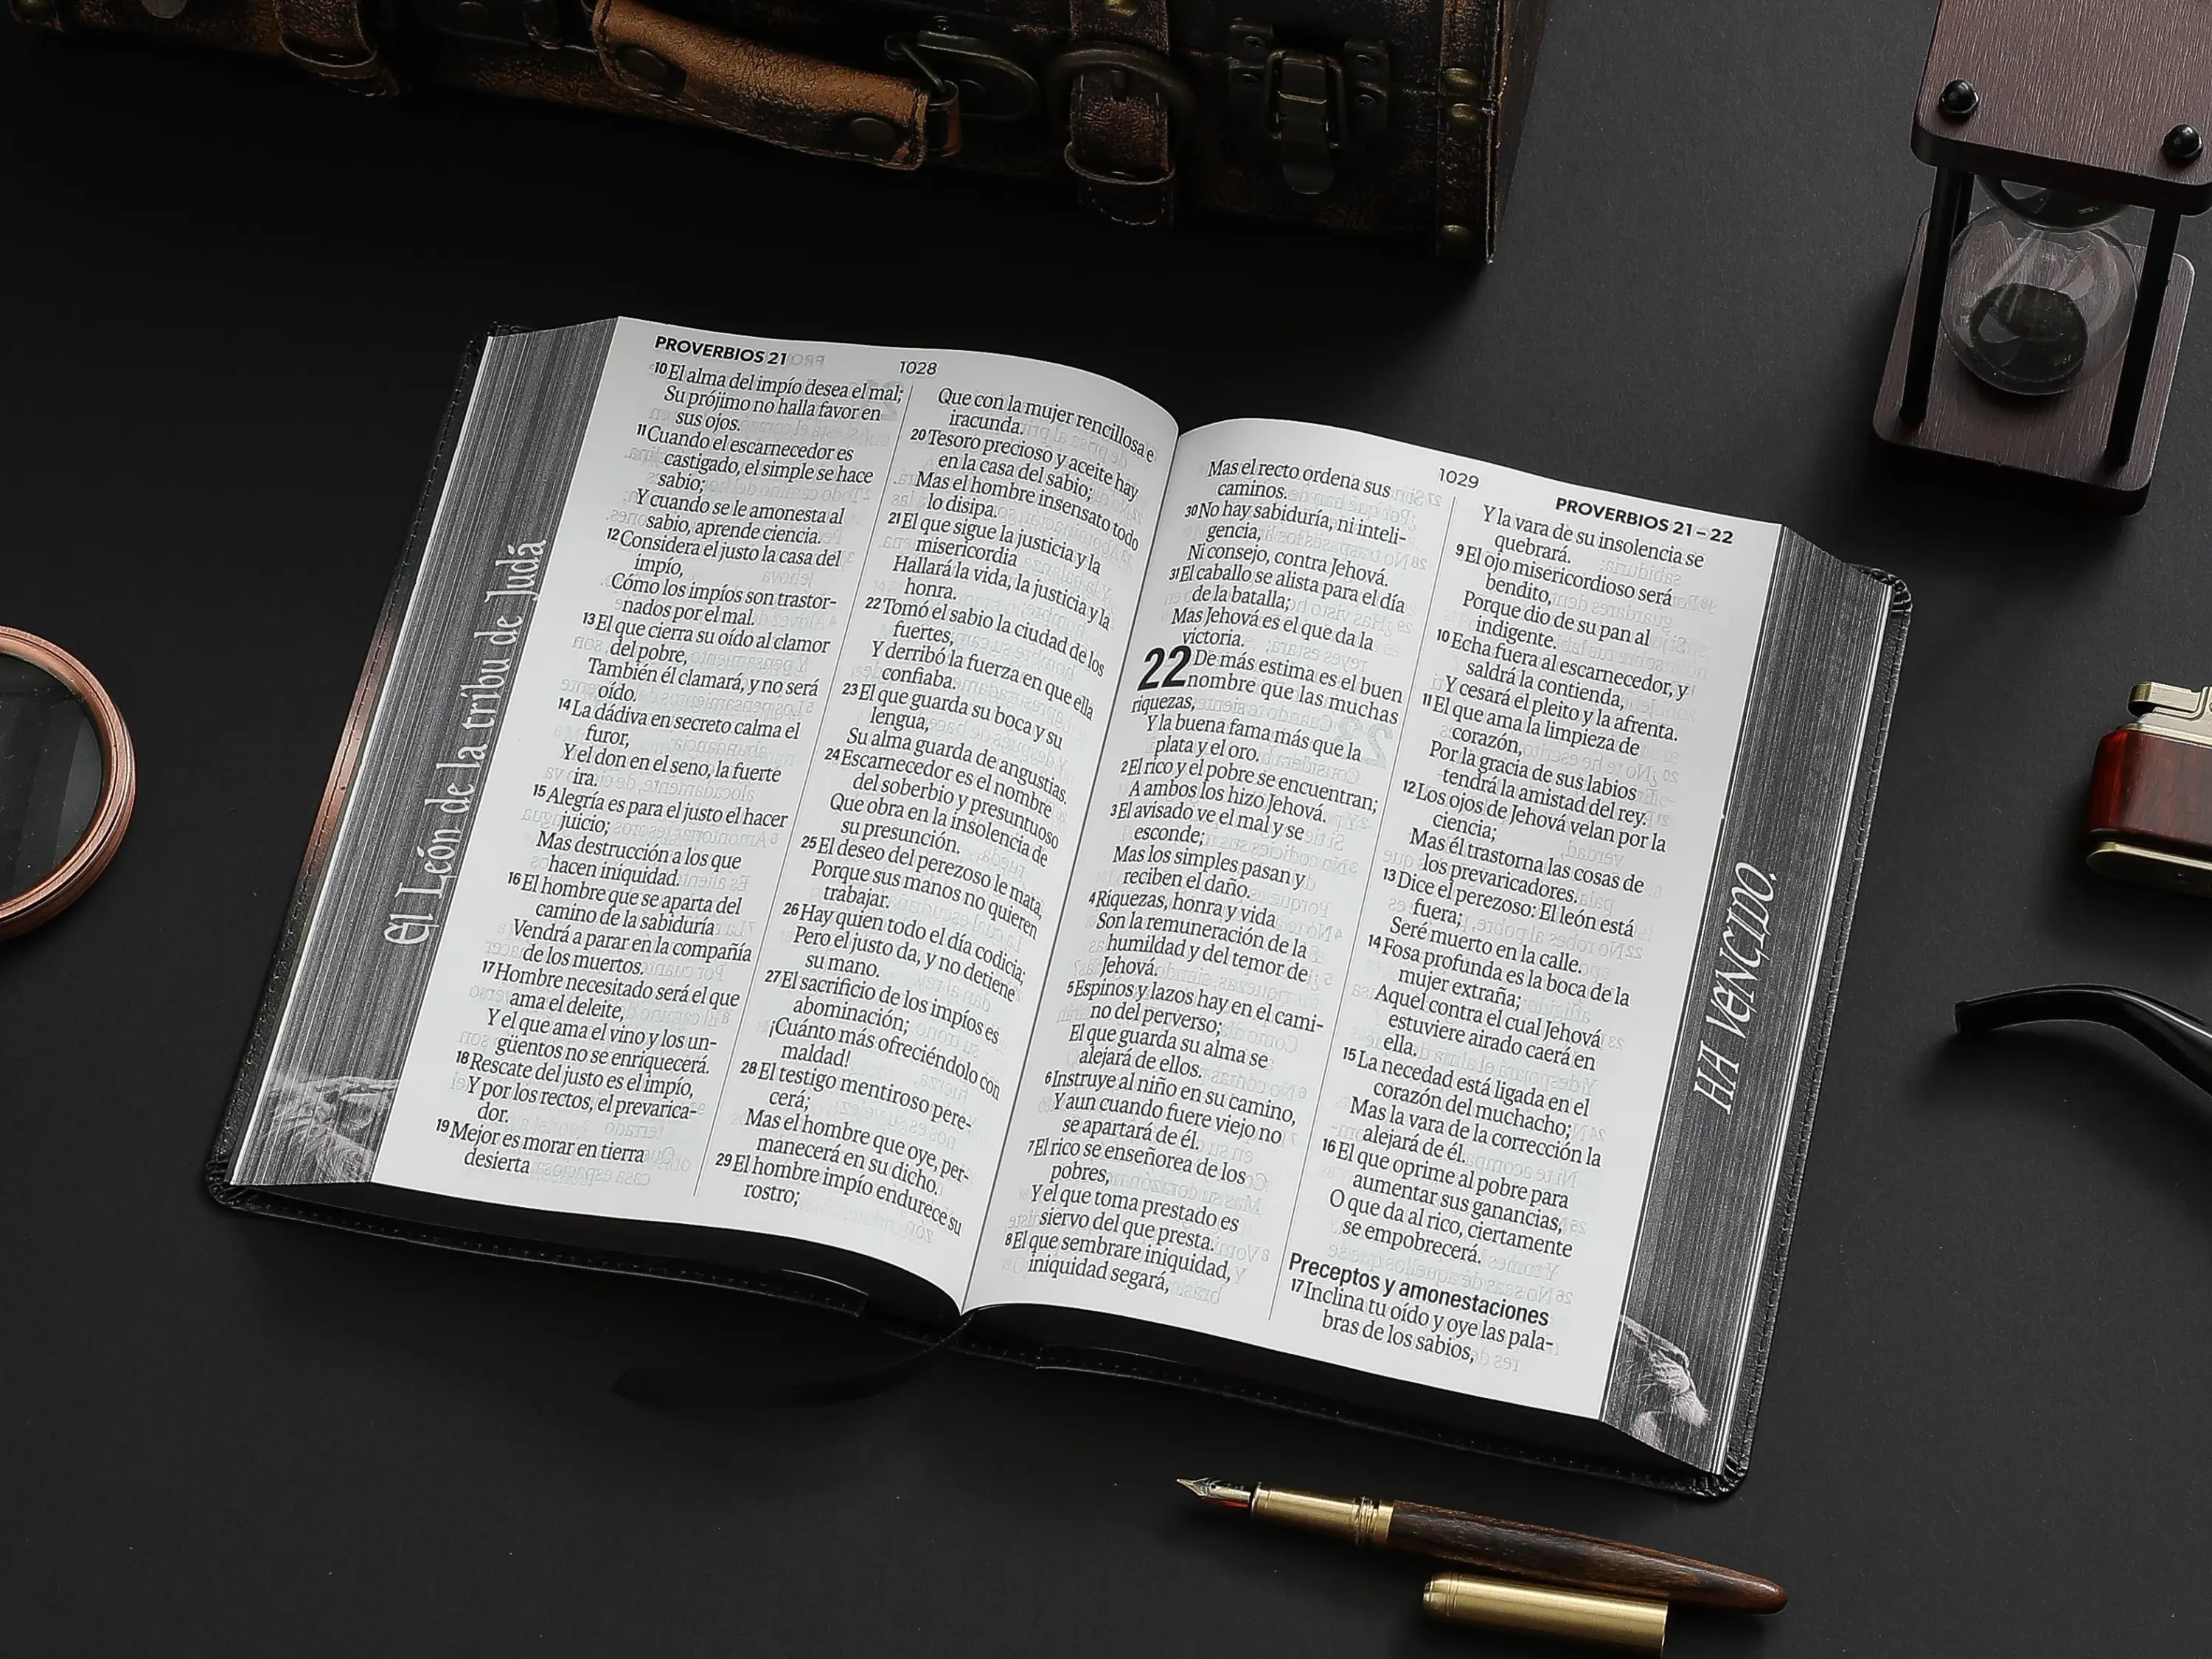 El León de la tribu de Judá
PROVERBIOS 21
1028
10 El alma del impío desea el mal;
Su prójimo no halla favor en
sus ojos.
11 Cuando el escarnecedor es
castigado, el simple se hace
sabio;
Y cuando se le amonesta al
sabio, aprende ciencia.
12 Considera el justo la casa del
impío,
Cómo los impíos son trastor-
nados por el mal.
13 El que cierra su oído al clamor
del pobre,
También él clamará, y no será
oído.
14 La dádiva en secreto calma el
furor,
Y el don en el seno, la fuerte
ira.
15 Alegría es para el justo el hacer
juicio;
Mas destrucción a los que
hacen iniquidad.
16 El hombre que se aparta del
camino de la sabiduría
Vendrá a parar en la compañía
de los muertos.
17 Hombre necesitado será el que
ama el deleite,
Y el que ama el vino y los un-
güentos no se enriquecerá.
18 Rescate del justo es el impío,
Y por los rectos, el prevarica-
dor.
19 Mejor es morar en tierra
desierta
Que con la mujer rencillosa e
iracunda.
20 Tesoro precioso y aceite hay
en la casa del sabio;
Mas el hombre insensato todo
lo disipa.
21 El que sigue la justicia y la
misericordia
Hallará la vida, la justicia y la
honra.
22 Tomó el sabio la ciudad de los
fuertes,
Y derribó la fuerza en que ella
confiaba.
23 El que guarda su boca y su
lengua,
Su alma guarda de angustias.
24 Escarnecedor es el nombre
del soberbio y presuntuoso
Que obra en la insolencia de
su presunción.
25 El deseo del perezoso le mata,
Porque sus manos no quieren
trabajar.
26 Hay quien todo el día codicia;
Pero el justo da, y no detiene
su mano.
27 El sacrificio de los impíos es
abominación;
¡Cuánto más ofreciéndolo con
maldad!
28 El testigo mentiroso pere-
cerá;
Mas el hombre que oye, per-
manecerá en su dicho.
29 El hombre impío endurece su
rostro;
1029
PROVERBIOS 21-22
Mas el recto ordena sus
caminos.
30 No hay sabiduría, ni inteli-
gencia,
Ni consejo, contra Jehová.
31 El caballo se alista para el día
de la batalla;
Mas Jehová es el que da la
victoria.
22 De más estima es el buen
nombre que las muchas
riquezas,
Y la buena fama más que la
plata y el oro.
2 El rico y el pobre se encuentran;
A ambos los hizo Jehová.
3 El avisado ve el mal y se
esconde;
Mas los simples pasan y
reciben el daño.
4 Riquezas, honra y vida
Son la remuneración de la
humildad y del temor de
Jehová.
5 Espinos y lazos hay en el cami-
no del perverso;
El que guarda su alma se
alejará de ellos.
6 Instruye al niño en su camino,
Y aun cuando fuere viejo no
se apartará de él.
7 El rico se enseñorea de los
pobres,
Y el que toma prestado es
siervo del que presta.
8 El que sembrare iniquidad,
iniquidad segará,
Y la vara de su insolencia se
quebrará.
9 El ojo misericordioso será
bendito,
Porque dio de su pan al
indigente.
10 Echa fuera al escarnecedor, y
saldrá la contienda,
Y cesará el pleito y la afrenta.
11 El que ama la limpieza de
corazón,
Por la gracia de sus labios
tendrá la amistad del rey.
12 Los ojos de Jehová velan por la
ciencia;
Mas él trastorna las cosas de
los prevaricadores.
13 Dice el perezoso: El león está
fuera;
Seré muerto en la calle.
14 Fosa profunda es la boca de la
mujer extraña;
Aquel contra el cual Jehová
estuviere airado caerá en
ella.
15 La necedad está ligada en el
corazón del muchacho;
Mas la vara de la corrección la
alejará de él.
16 El que oprime al pobre para
aumentar sus ganancias,
O que da al rico, ciertamente
se empobrecerá.
Preceptos y amonestaciones
17 Inclina tu oído y oye las pala-
bras de los sabios,
HA VENCIDO.